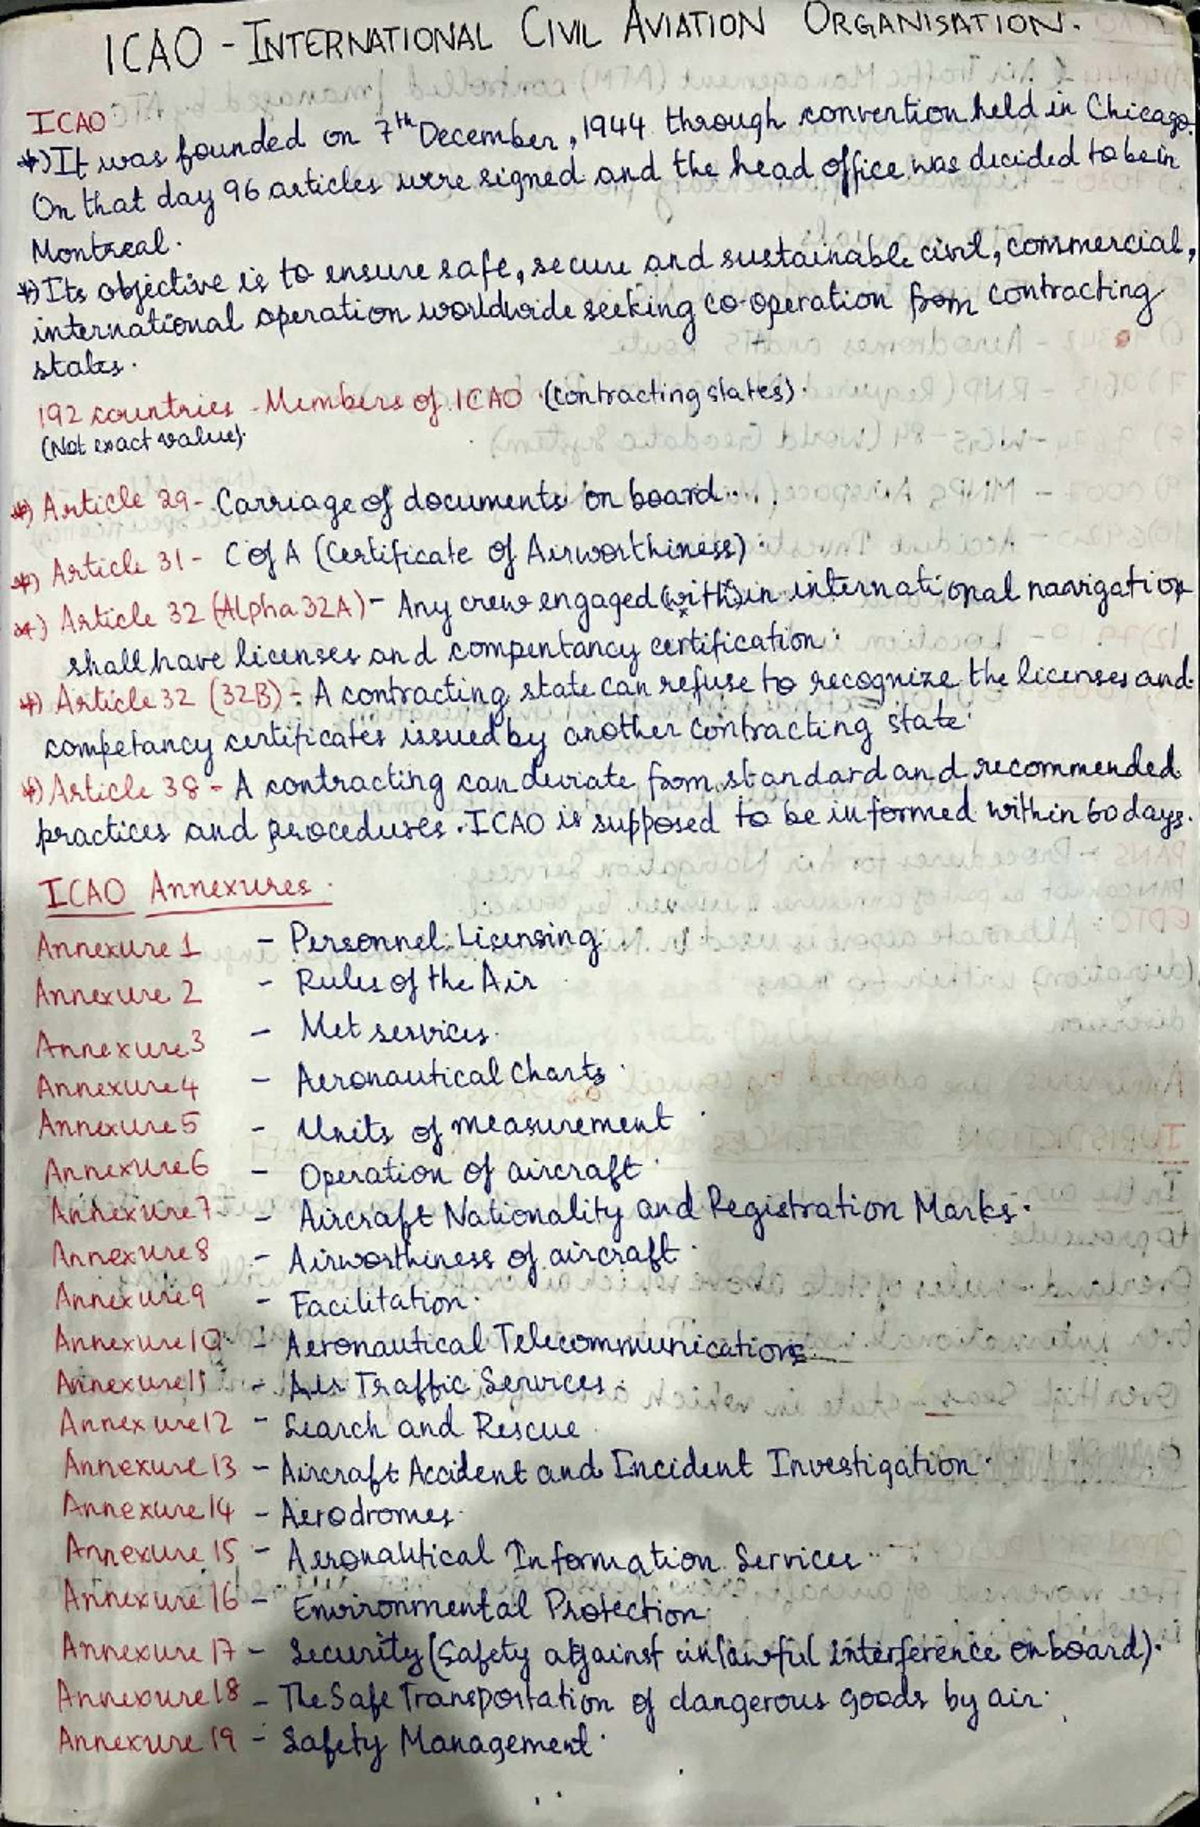 ICAO - INTERNATIONAL CIVIL AVIATION ORGANISATION.
ICAO
*) It was founded on 7th December, 1944 through convention held in Chicago.
On that day 96 articles were signed and the head office was decided to be in
Montreal.
*) Its objective is to ensure safe, secure and sustainable civil, commercial,
international operation worldwide seeking co-operation from contracting
states.
192 countries - Members of ICAO (contracting states).
(Not exact value).
*) Article 29 - Carriage of documents on board.
*) Article 31 - C of A (Certificate of Airworthiness).
*) Article 32 (Alpha 32A) - Any crew engaged (with)in international naavigation
shall have licenses and compentancy certification.
*) Article 32 (32B) - A contracting state can refuse to recognize the licenses and
competancy certificates issued by another contracting state.
*) Article 38 - A contracting can deviate from standard and recommended
practices and procedures. ICAO is supposed to be informed within 60 days.
ICAO Annexures.
Annexure 1 - Personnel Licensing.
Annexure 2 - Rules of the Air
Annexure 3 - Met services.
Annexure 4 - Aeronautical Charts.
Annexure 5 - Units of measurement
Annexure 6 - Operation of aircraft.
Annexure 7 - Aircraft Nationality and Registration Marks.
Annexure 8 - Airworthiness of aircraft.
Annexure 9 - Facilitation.
Annexure 10 - Aeronautical Telecommunications
Annexure 11 - Air Traffic Services.
Annexure 12 - Search and Rescue
Annexure 13 - Aircraft Accident and Incident Investigation.
Annexure 14 - Aerodromes.
Annexure 15 - Aeronautical Information Services.
Annexure 16 - Environmental Protection.
Annexure 17 - Security (Safety against unlawful interference onboard).
Annexure 18 - The Safe Transportation of dangerous goods by air.
Annexure 19 - Safety Management.